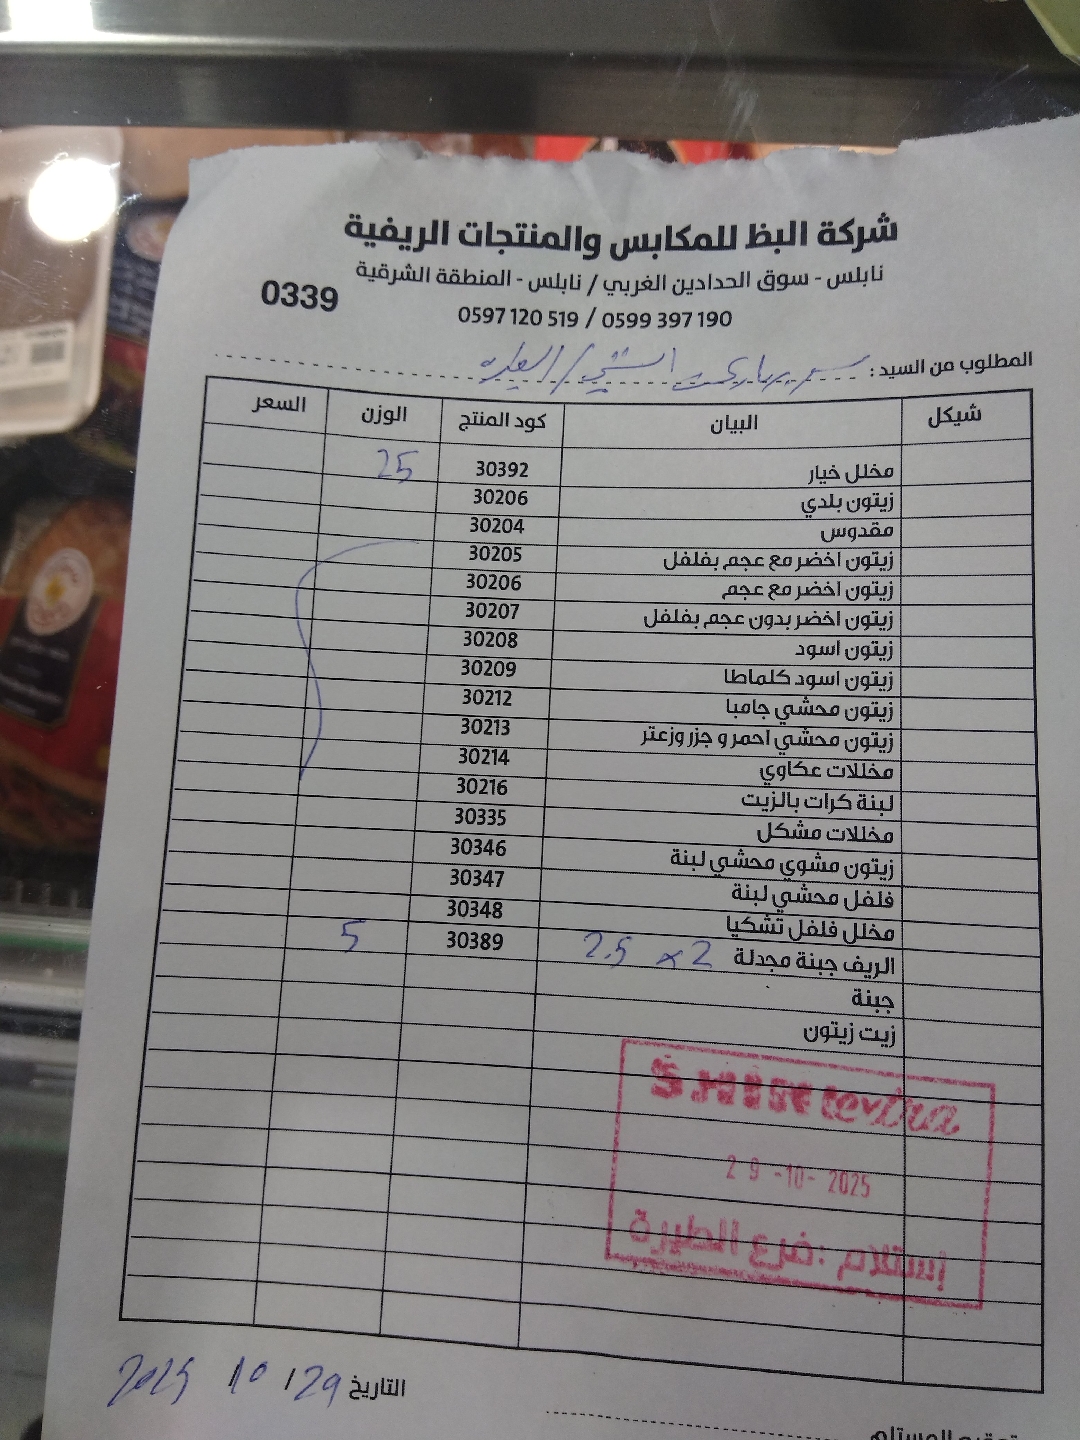 شركة البظ للمكابس والمنتجات الريفية
نابلس - سوق الحدادين الغربي / نابلس - المنطقة الشرقية
0339
0597 120 519 / 0599 397 190
المطلوب من السيد : سوبرماركت الشني / الطيره
شيكل البيان كود المنتج الوزن السعر
مخلل خيار 30392 25
زيتون بلدي 30206
مقدوس 30204
زيتون اخضر مع عجم بفلفل 30205
زيتون اخضر مع عجم 30206
زيتون اخضر بدون عجم بفلفل 30207
زيتون اسود 30208
زيتون اسود كلماطا 30209
زيتون محشي جامبا 30212
زيتون محشي احمر و جزر وزعتر 30213
مخللات عكاوي 30214
لبنة كرات بالزيت 30216
مخللات مشكل 30335
زيتون مشوي محشي لبنة 30346
فلفل محشي لبنة 30347
مخلل فلفل تشكيا 30348
الريف جبنة مجدلة 2 × 2.5 30389 5
جبنة
زيت زيتون
29 -10- 2025
إستلام : فرع الطيرة
التاريخ 29 / 10 / 2025
توقيع المستلم